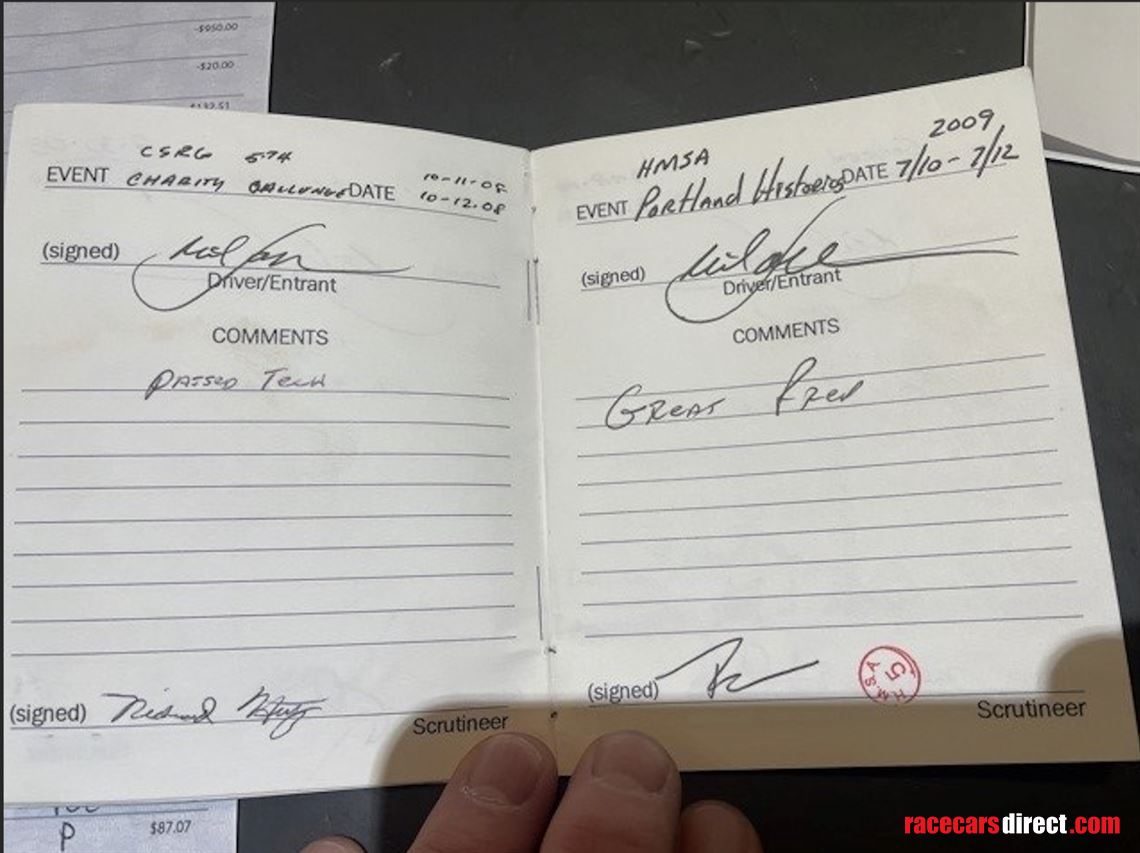 -$950.00
-$20.00
CSRG 574
EVENT CHARITY CHALLENGE DATE 10-11-08
10-12-08
(signed)
Driver/Entrant
COMMENTS
PASSED TECH
(signed)
Scrutineer
2009
HMSA
EVENT Portland Historics DATE 7/10 - 7/12
(signed)
Driver/Entrant
COMMENTS
GREAT PREP
(signed)
HMSA 5
Scrutineer
P $87.07
racecarsdirect.com